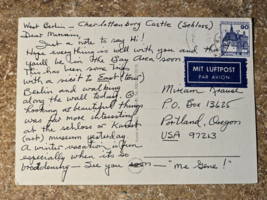 West Berlin - Charlottenburg Castle (Schloss)
Dear Miriam,
Just a note to say Hi!
Hope everything is well with you and that
you'll be in the Bay Area soon
This has been some trip
with a visit to East (tour)
Berlin and walking
along the wall today. @
Looking at beautiful things
was far more interesting
at the schloss or Kunst
(art) museum yesterday.
A winter vacation is fun
especially when it's so
See you soon - "Me Gene!"
90
MIT LUFTPOST
PAR AVION
Miriam
PO Box 13625
Portland, Oregon
USA 97213